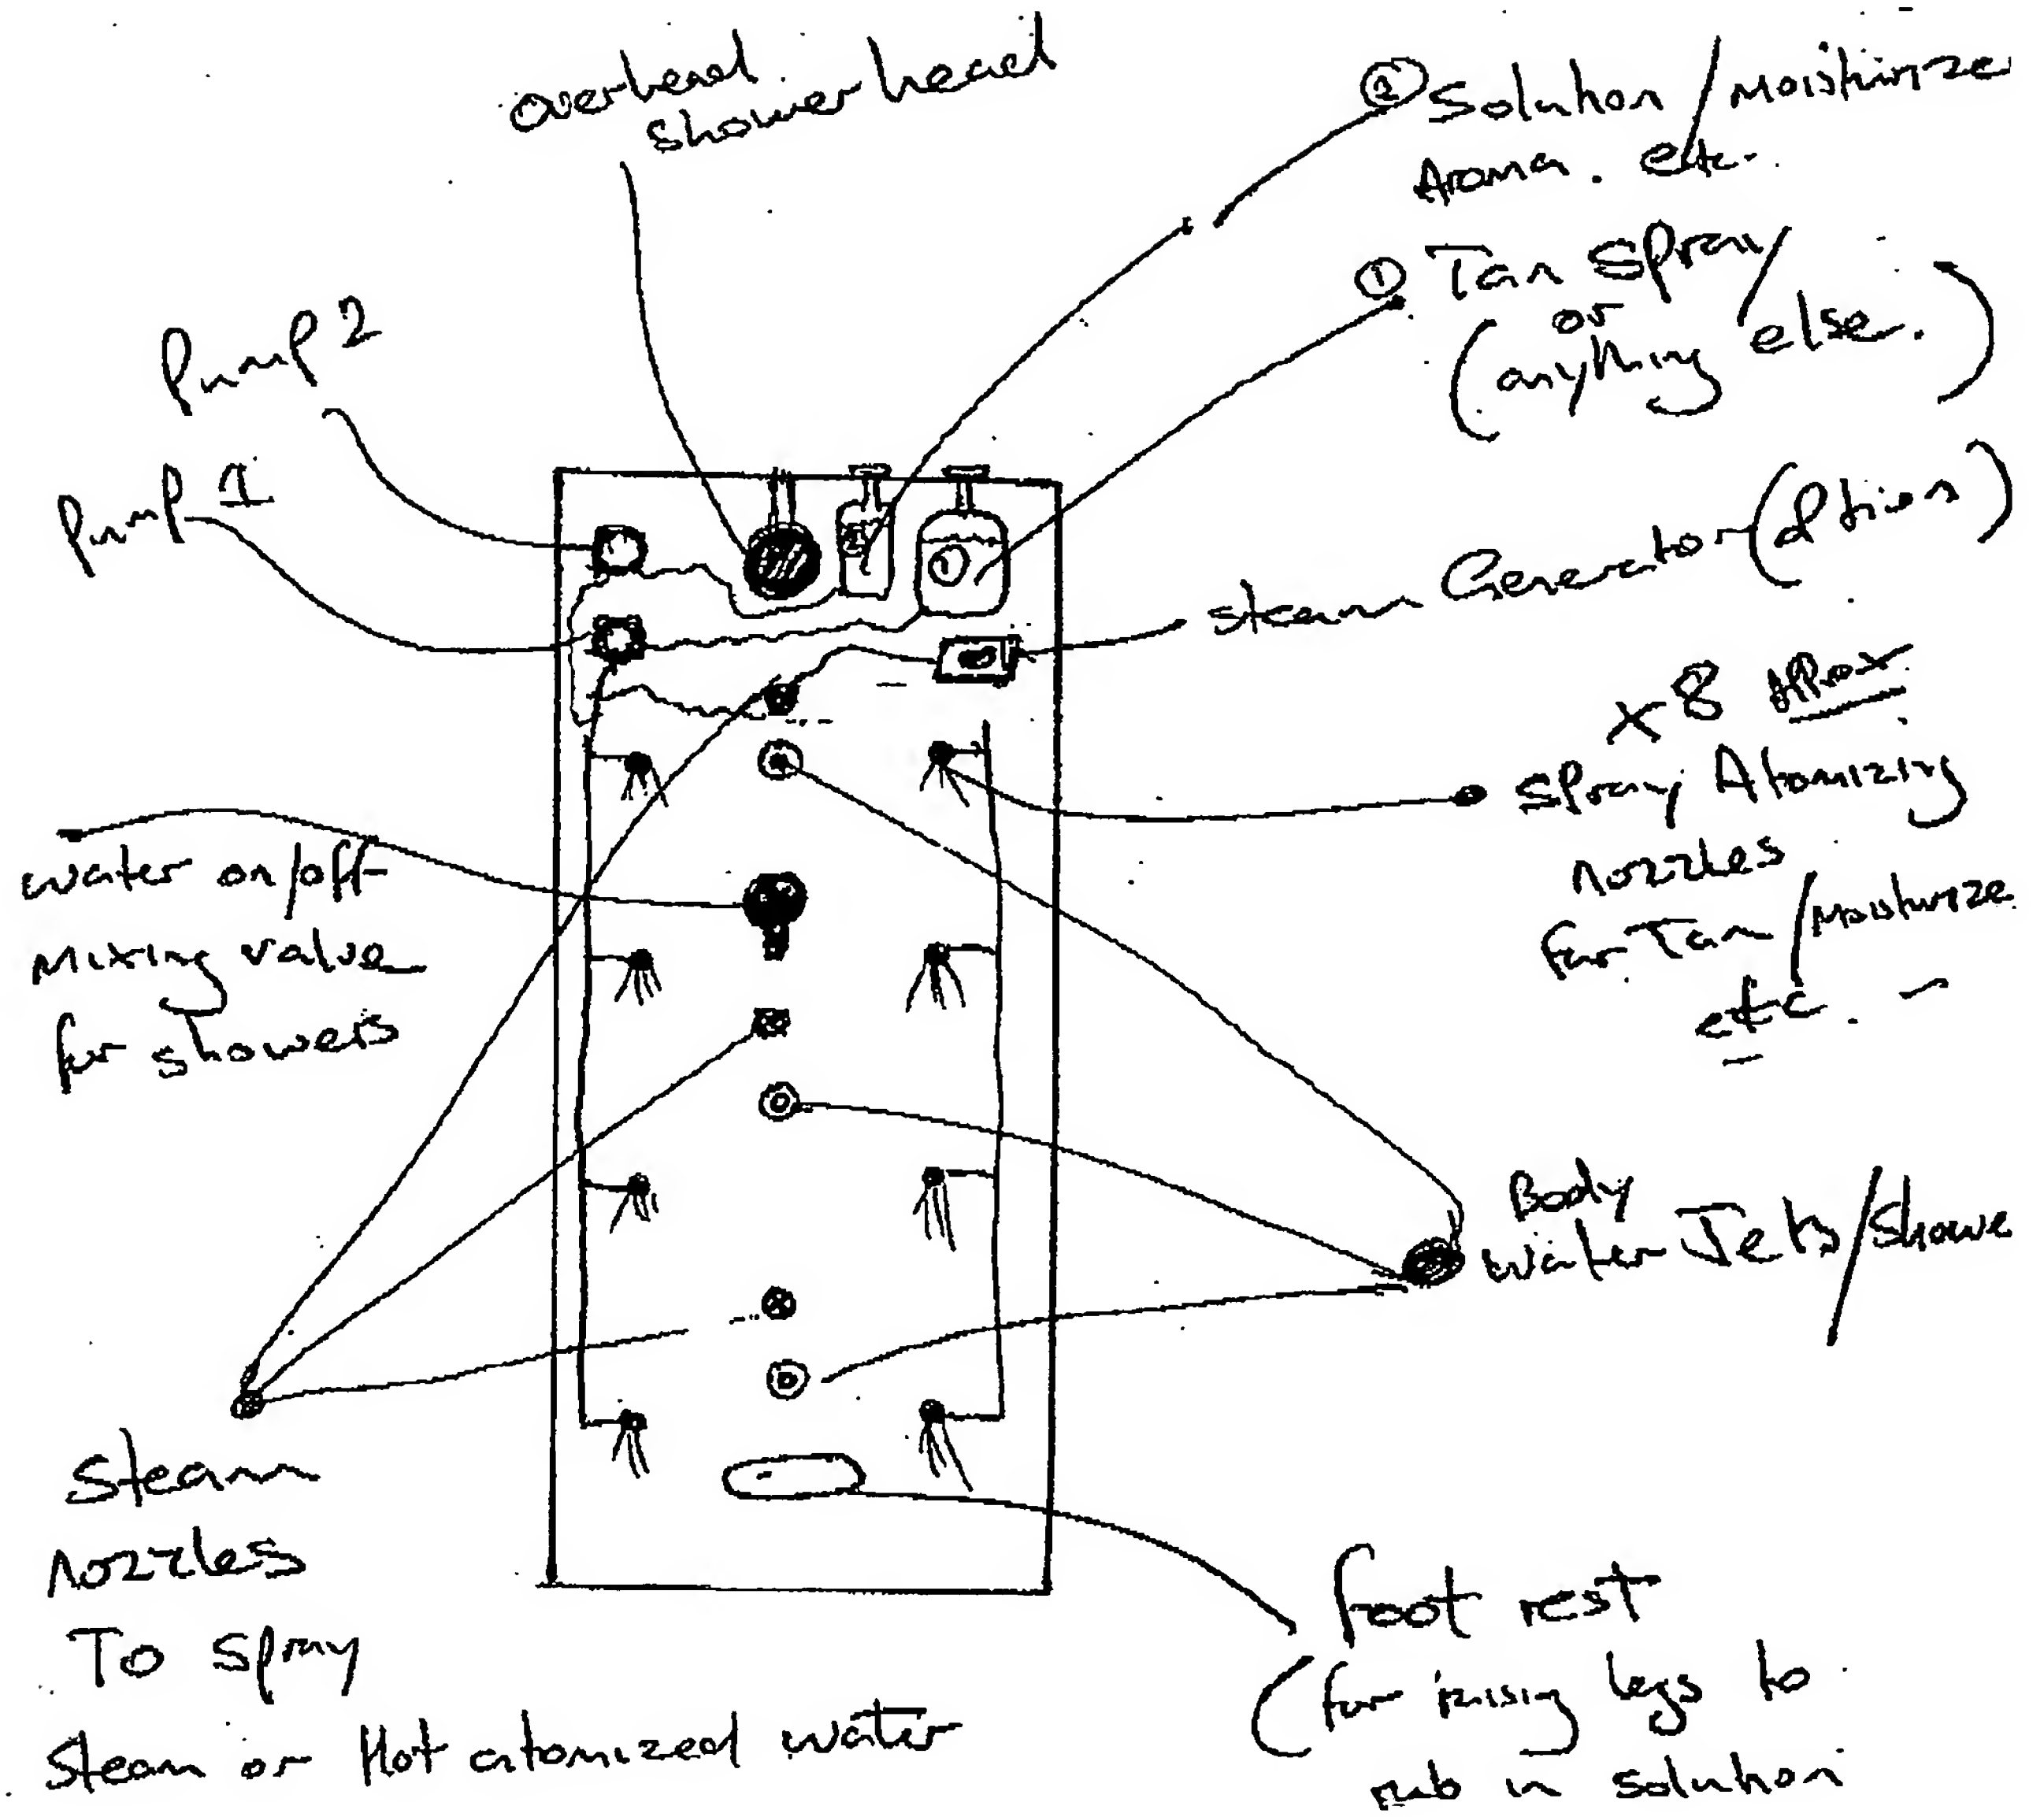 overhead
shower head
② Solution / Moisturize
Aroma. etc.
① Tan Spray /
or
(anything else.)
Pump 2
Pump 1
②
①
steam Generator (Option)
x8 Approx
Spray Atomizing
nozzles
for Tan / Moisturize
etc.
water on/off
Mixing valve
for showers
Body
water Jets / Showe
Steam
nozzles
To spray
Steam or Hot atomized water
foot rest
(for raising legs to
rub in solution